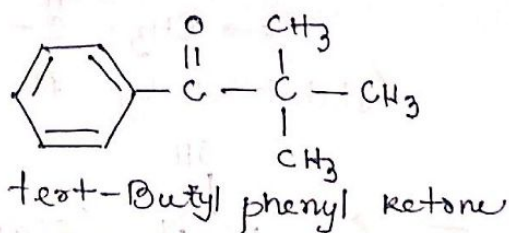 O CH3
|| |
C — C — CH3
|
CH3
tert-Butyl phenyl ketone